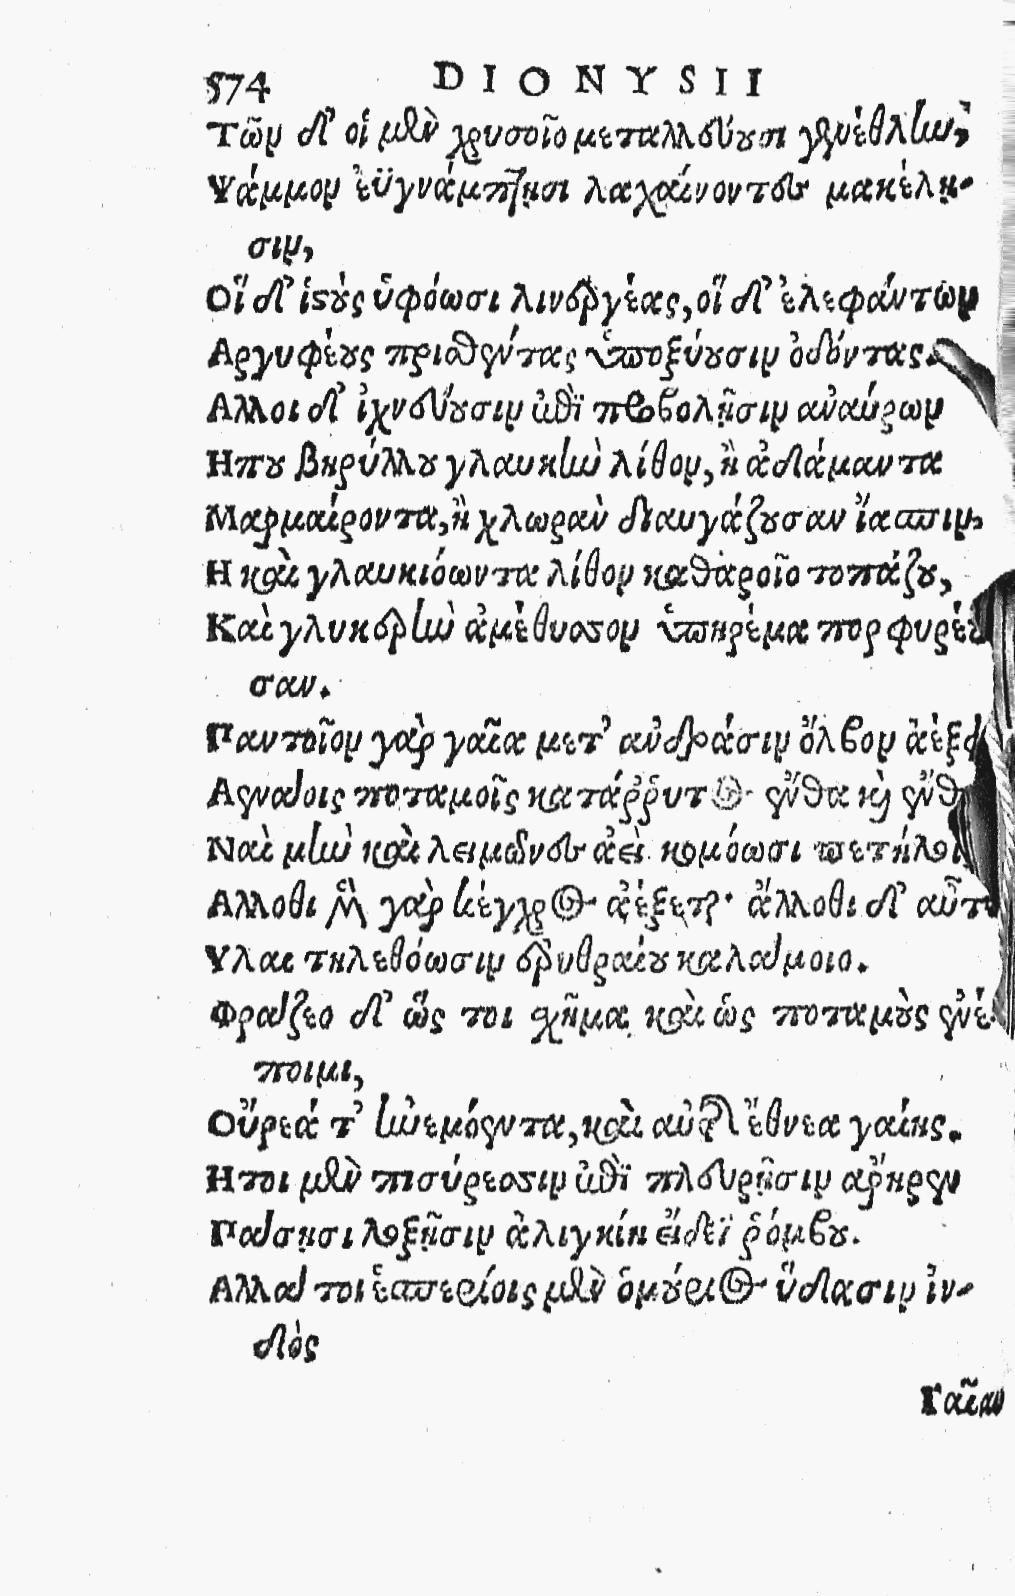 574 DIONYSII
Τῶν δ' οἱ μὲν χρυσοῖο μεταλλεύουσι γενέθλην,
Ψάμμον ἐϋγνάμπτῃσι λαχαίνοντες μακέλῃ-
σιν,
Οἵ δ' ἱστοὺς ὑφόωσι λινεργέας, οἵ δ' ἐλεφάντων
Αργυφέους πρισθέντας ὑποξύουσιν ὀδόντας.
Αλλοι δ' ἰχνεύουσιν ἐπὶ προβολῇσιν ἀναύρων
Ηπου βηρύλλου γλαυκὴν λίθον, ἢ ἀδάμαντα
Μαρμαίροντα, ἢ χλωρὰν διαυγάζουσαν ἴασπιν,
Η καὶ γλαυκιόωντα λίθον καθαροῖο τοπάζου,
Καὶ γλυκερὴν ἀμέθυστον ὑπηρέμα πορφυρέου
σαν.
Παντοῖον γὰρ γαῖα μετ' ἀνδράσιν ὄλβον ἀέξει
Αενάοις ποταμοῖς κατάῤῥυτος ἔνθα καὶ ἔνθα
Ναὶ μὴν καὶ λειμῶνες ἀεὶ κομόωσι πετήλοις
Αλλοθι μὲν γὰρ κέγχρος ἀέξεται· ἄλλοθι δ' αὖτε
Υλαι τηλεθόωσιν ἐρυθραίου καλάμοιο.
Φράζεο δ' ὥς τοι σχῆμα καὶ ὡς ποταμοὺς ἐνέ-
ποιμι,
Οὔρεά τ' ἠνεμόεντα, καὶ αὐτῆς ἔθνεα γαίης.
Ητοι μὲν πισύρεσσιν ἐπὶ πλευρῇσιν ἀρηρεν
Πάσῃσι λοξῇσιν ἀλιγκίη εἴδεϊ ῥόμβου.
Αλλά τοι ἑσπερίοις μὲν ὁμούριος ὕδασιν ἰν-
δὸς
Γαῖαν